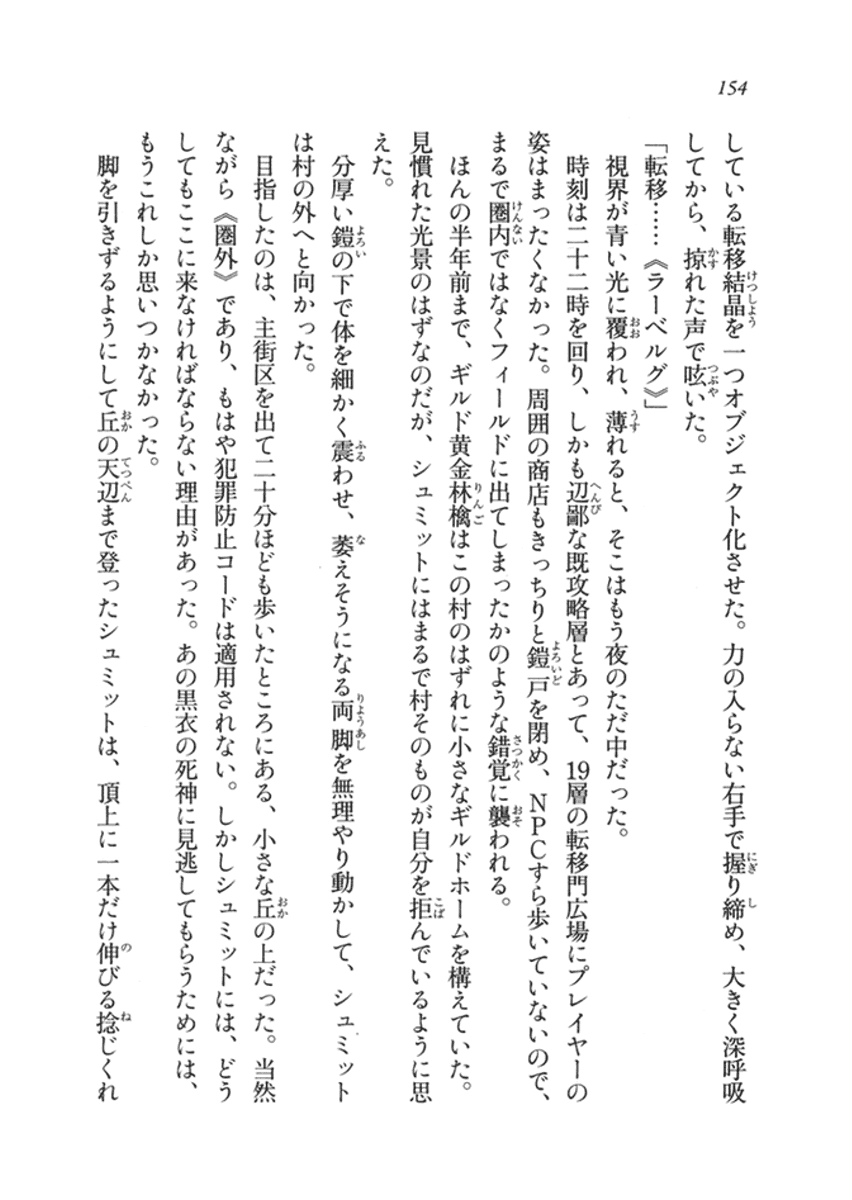 154
している転移結晶を一つオブジェクト化させた。力の入らない右手で握り締め、大きく深呼吸
してから、掠れた声で呟いた。
「転移……《ラーベルグ》」
視界が青い光に覆われ、薄れると、そこはもう夜のただ中だった。
時刻は二十二時を回り、しかも辺鄙な既攻略層とあって、19層の転移門広場にプレイヤーの
姿はまったくなかった。周囲の商店もきっちりと鎧戸を閉め、NPCすら歩いていないので、
まるで圏内ではなくフィールドに出てしまったかのような錯覚に襲われる。
ほんの半年前まで、ギルド黄金林檎はこの村のはずれに小さなギルドホームを構えていた。
見慣れた光景のはずなのだが、シュミットにはまるで村そのものが自分を拒んでいるように思
えた。
分厚い鎧の下で体を細かく震わせ、萎えそうになる両脚を無理やり動かして、シュミット
は村の外へと向かった。
目指したのは、主街区を出て二十分ほども歩いたところにある、小さな丘の上だった。当然
ながら《圏外》であり、もはや犯罪防止コードは適用されない。しかしシュミットには、どう
してもここに来なければならない理由があった。あの黒衣の死神に見逃してもらうためには、
もうこれしか思いつかなかった。
脚を引きずるようにして丘の天辺まで登ったシュミットは、頂上に一本だけ伸びる捻じくれ